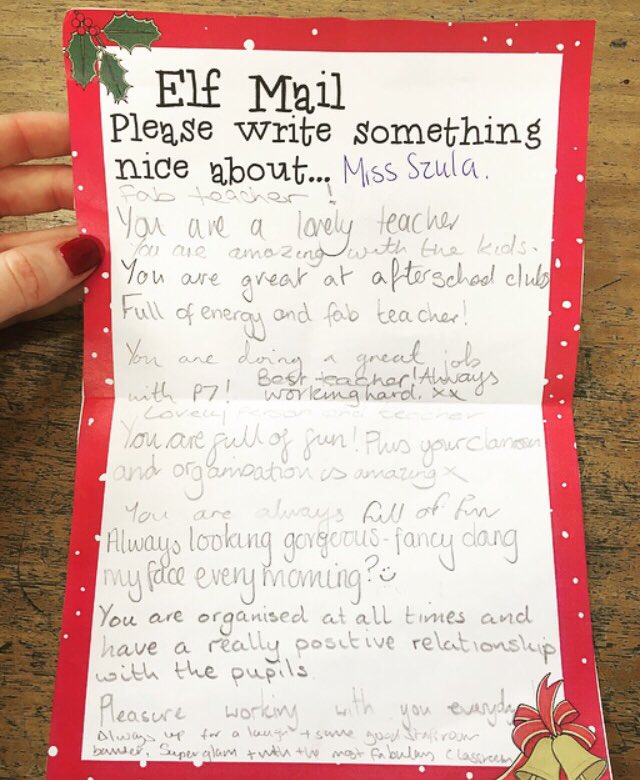 Elf Mail
Please write something
nice about... Miss Szula.
Fab teacher!
You are a lovely teacher
You are amazing with the kids.
You are great at afterschool clubs
Full of energy and fab teacher!
You are doing a great job
with P7! Best teacher! Always
working hard. xx
Lovely person and teacher
You are full of fun! Plus your classroom
and organisation is amazing x
You are always full of fun
Always looking gorgeous - fancy doing
my face every morning? ☺
You are organised at all times and
have a really positive relationship
with the pupils.
Pleasure working with you everyday
Always up for a laugh + some good staffroom
banter. Super glam + with the most fabulous classroom